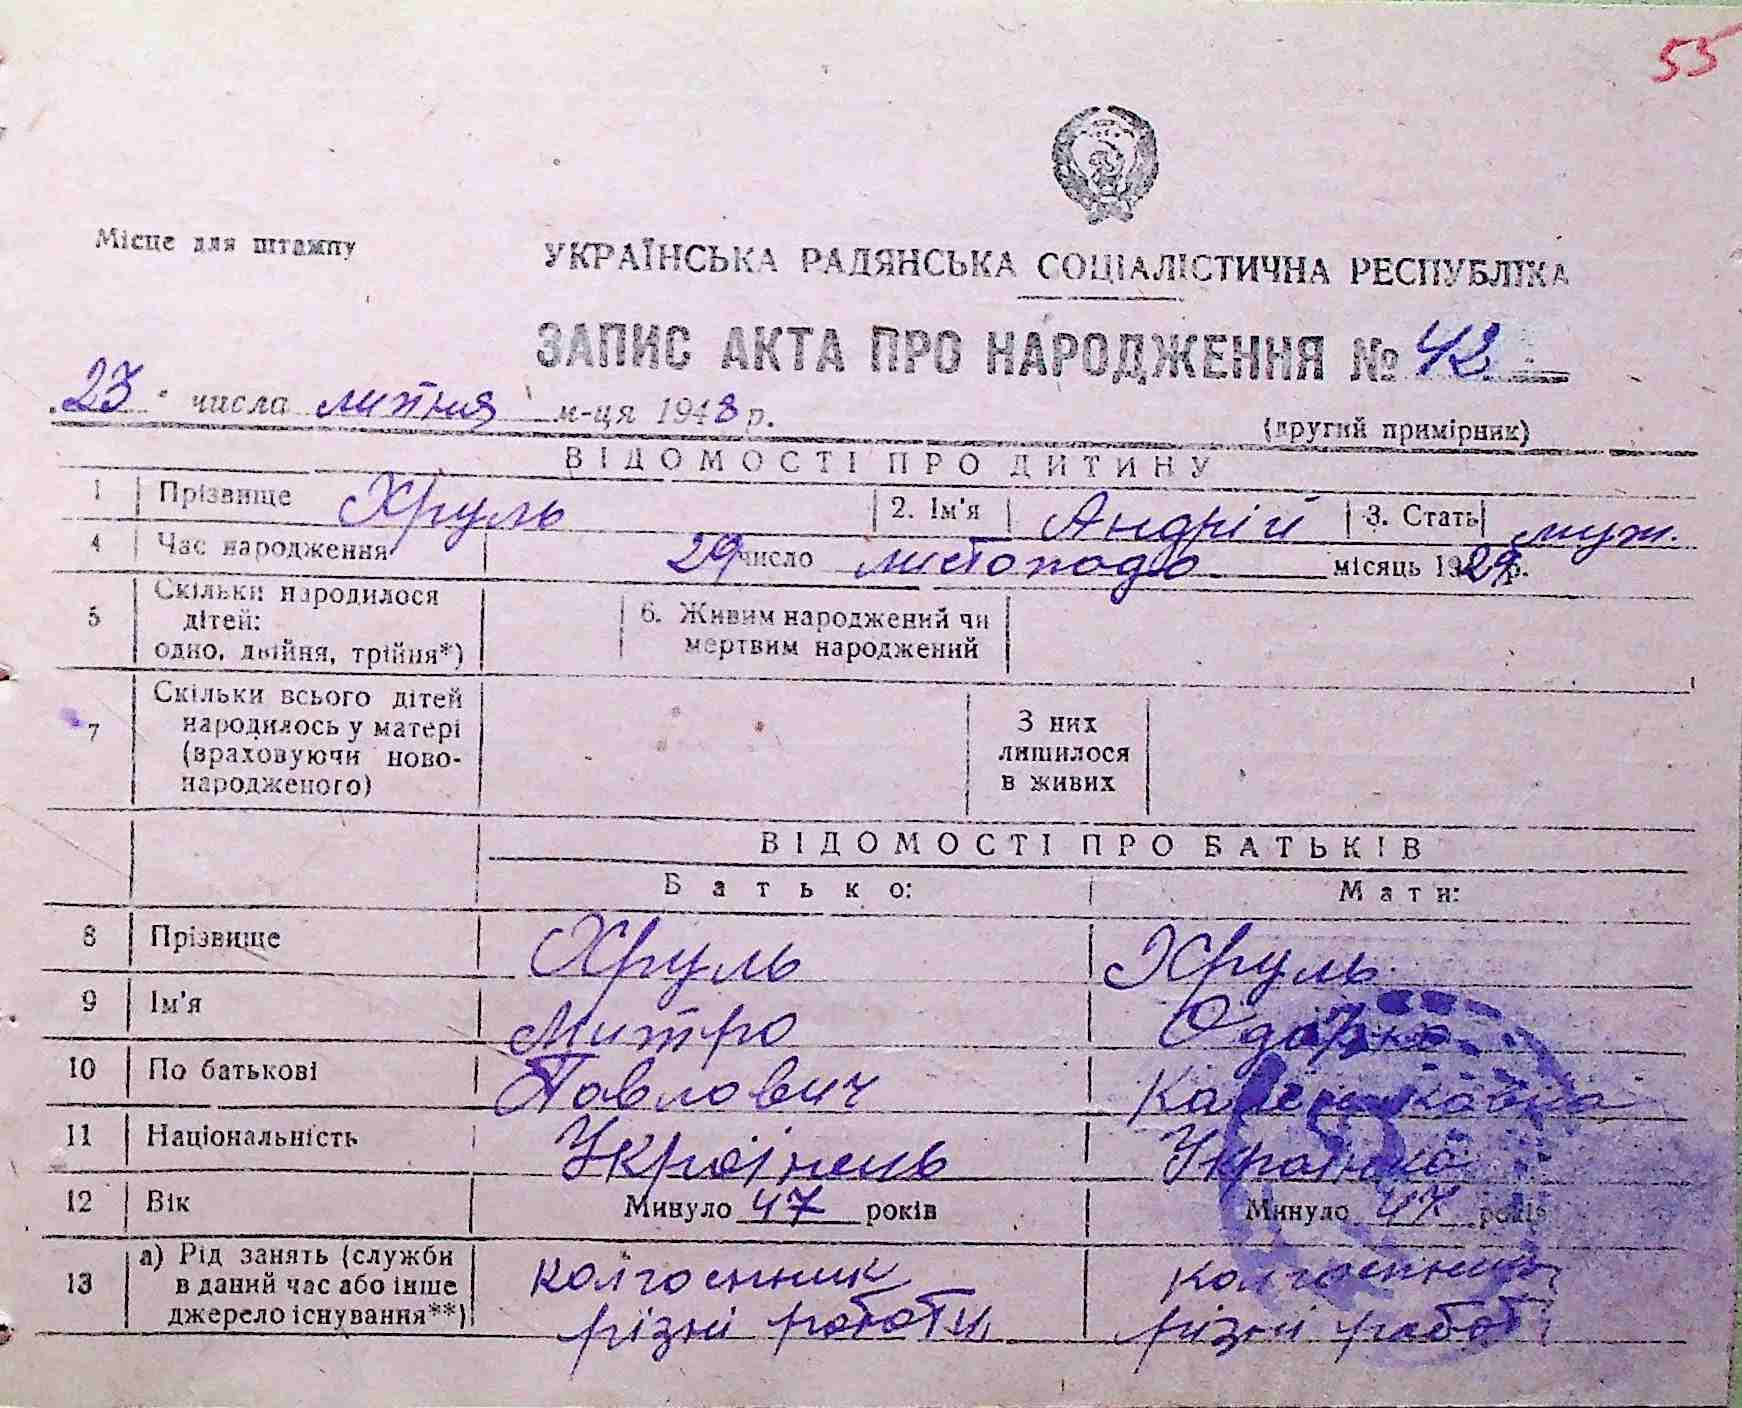 55
Місце для штампу
УКРАЇНСЬКА РАДЯНСЬКА СОЦІАЛІСТИЧНА РЕСПУБЛІКА
ЗАПИС АКТА ПРО НАРОДЖЕННЯ № 42
23 числа липня м-ця 1948 р.
(другий примірник)
ВІДОМОСТІ ПРО ДИТИНУ
1 Прізвище Хруль 2. Ім'я Андрій 3. Стать муж.
4 Час народження 29 число листопада місяць 1929 р.
5 Скільки народилося дітей: одно, двійня, трійня*) 6. Живим народжений чи мертвим народжений
7 Скільки всього дітей народилось у матері (враховуючи ново-народженого) З них лишилося в живих
ВІДОМОСТІ ПРО БАТЬКІВ
Батько: Мати:
8 Прізвище Хруль Хруль
9 Ім'я Митро Одарка
10 По батькові Павлович
11 Національність Українець Українка
12 Вік Минуло 47 років Минуло 47 років
13 а) Рід занять (служби в даний час або інше джерело існування**) колгоспник різні роботи колгоспник різні работи